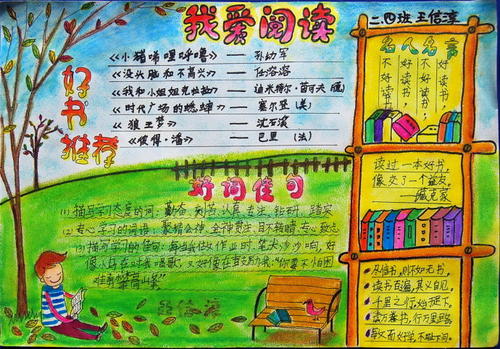 我爱阅读
二.四班 王信淳
好书推荐
《小猪唏哩呼噜》 —— 孙幼军
《没头脑和不高兴》 —— 任溶溶
《时代广场的蟋蟀》 —— 塞尔登(美)
《狼王梦》 —— 沈石溪
《彼得·潘》 —— 巴里 (法)
名人名言
好读书,
不好读书;
好读书,
不好读书。
读过一本好书,
像交了一个益友。
——臧克家
好词佳句
(1) 描写学习态度的词: 勤奋、刻苦、认真、专注、钻研、踏实
(2) 专心学习的词语: 聚精会神、全神贯注、目不转睛、专心致志
(3) 描写学习的佳句: 每当我做作业时,笔尖沙沙响,好
尽信书,则不如无书。
读书百遍,其义自见。
千里之行始于足下。
读万卷书,行万里路。